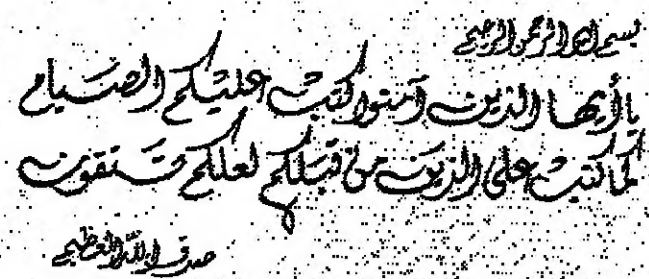 بسم الله الرحمن الرحيم
يا أيها الذين آمنوا كتب عليكم الصيام
كما كتب على الذين من قبلكم لعلكم تتقون
صدق الله العظيم